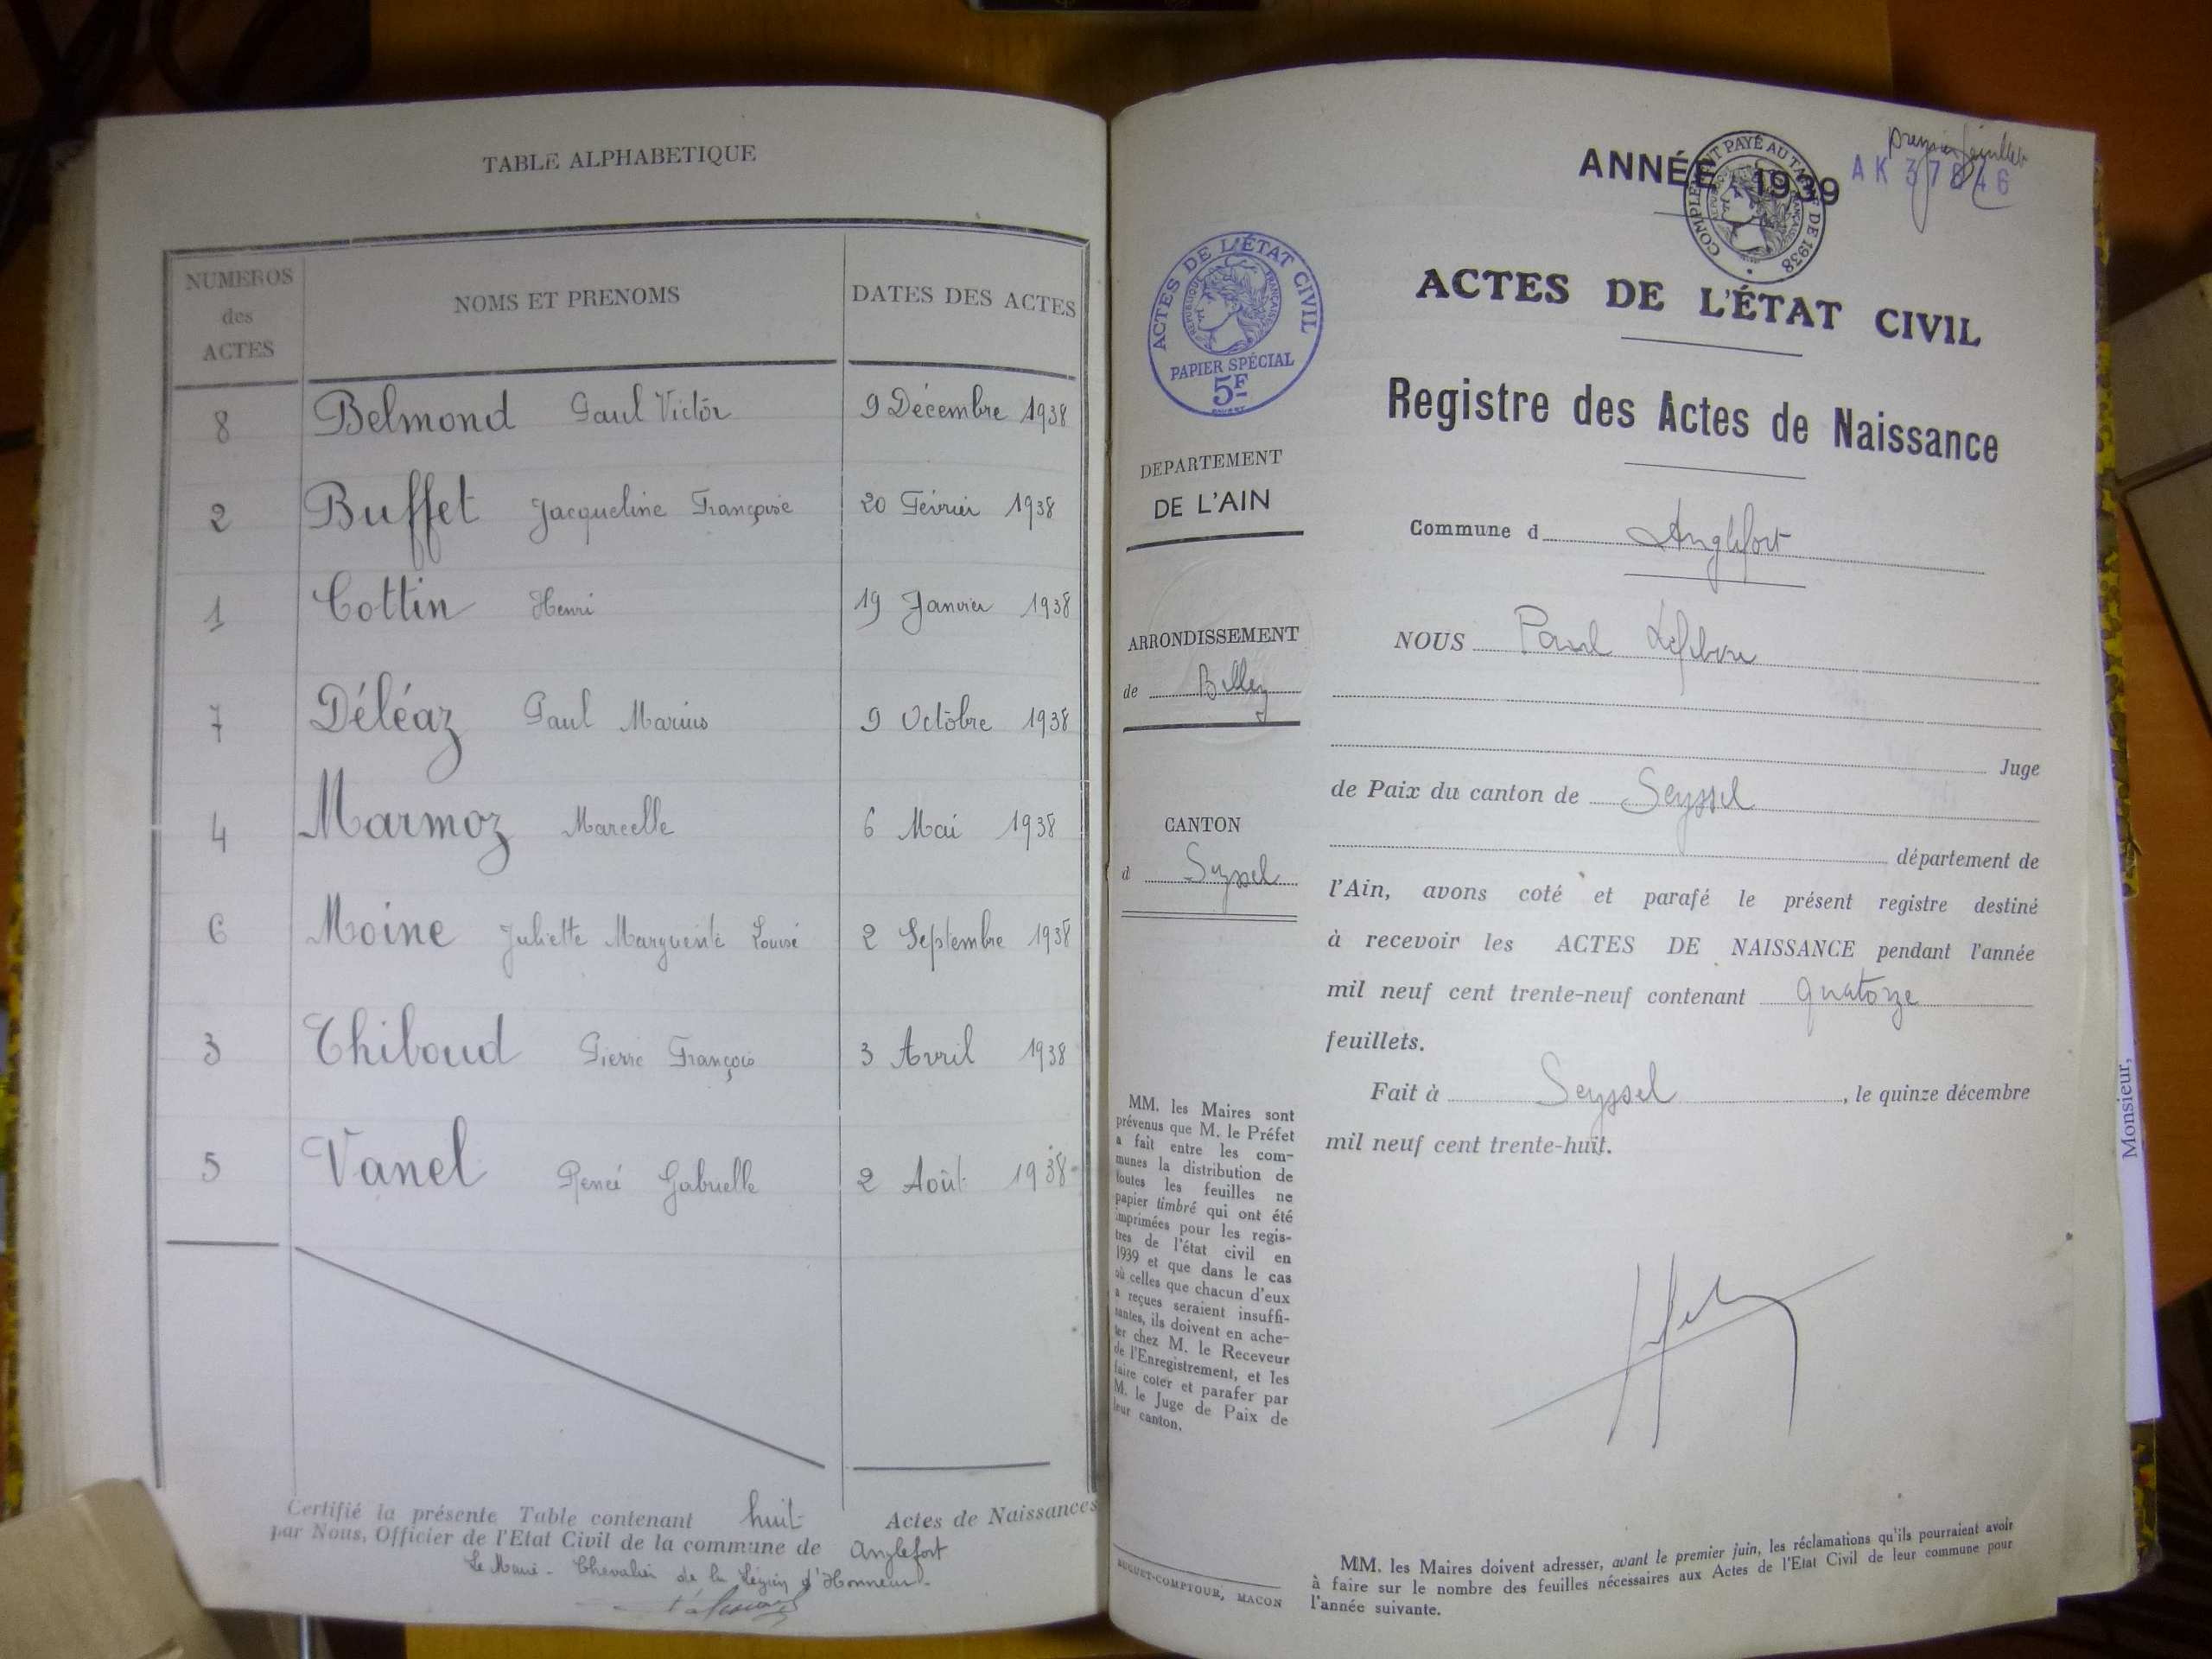 TABLE ALPHABETIQUE
NUMEROS
des
ACTES
NOMS ET PRENOMS
DATES DES ACTES
8 Belmond Paul Victor 9 Décembre 1938
2 Buffet Jacqueline Françoise 20 Février 1938
1 Cottin Henri 19 Janvier 1938
7 Déléaz Paul Marius 9 Octobre 1938
4 Marmoz Marcelle 6 Mai 1938
6 Moine Juliette Marguerite Louise 2 Septembre 1938
3 Thiboud Pierre François 3 Avril 1938
5 Vanel Renée Gabrielle 2 Août 1938
Certifié la présente Table contenant huit Actes de Naissances
par Nous, Officier de l'Etat Civil de la commune de Anglefort
Le Maire - Chevalier de la Légion d'Honneur -
premier feuillet
ANNÉE 1939
AK 37846
COMPLÉMENT PAYÉ AU TARIF DE 1938
RÉPUBLIQUE FRANÇAISE
ACTES DE L'ÉTAT CIVIL
RÉPUBLIQUE FRANÇAISE
PAPIER SPÉCIAL
5F
DEPARTEMENT
DE L'AIN
ARRONDISSEMENT
de Belley
CANTON
d Seyssel
MM. les Maires sont
prévenus que M. le Préfet
a fait entre les com-
munes la distribution de
toutes les feuilles ne
papier timbré qui ont été
imprimées pour les regis-
tres de l'état civil en
1939 et que dans le cas
où celles que chacun d'eux
a reçues seraient insuffi-
santes, ils doivent en ache-
ter chez M. le Receveur
de l'Enregistrement, et les
faire coter et parafer par
M. le Juge de Paix de
leur canton.
BUGUET-COMPTOUR, MACON
ACTES DE L'ÉTAT CIVIL
Registre des Actes de Naissance
Commune d Anglefort
NOUS Paul Lefebvre
Juge
de Paix du canton de Seyssel
département de
l'Ain, avons coté et parafé le présent registre destiné
à recevoir les ACTES DE NAISSANCE pendant l'année
mil neuf cent trente-neuf contenant quatorze
feuillets.
Fait à Seyssel, le quinze décembre
mil neuf cent trente-huit.
MM. les Maires doivent adresser, avant le premier juin, les réclamations qu'ils pourraient avoir
à faire sur le nombre des feuilles nécessaires aux Actes de l'Etat Civil de leur commune pour
l'année suivante.
Monsieur,